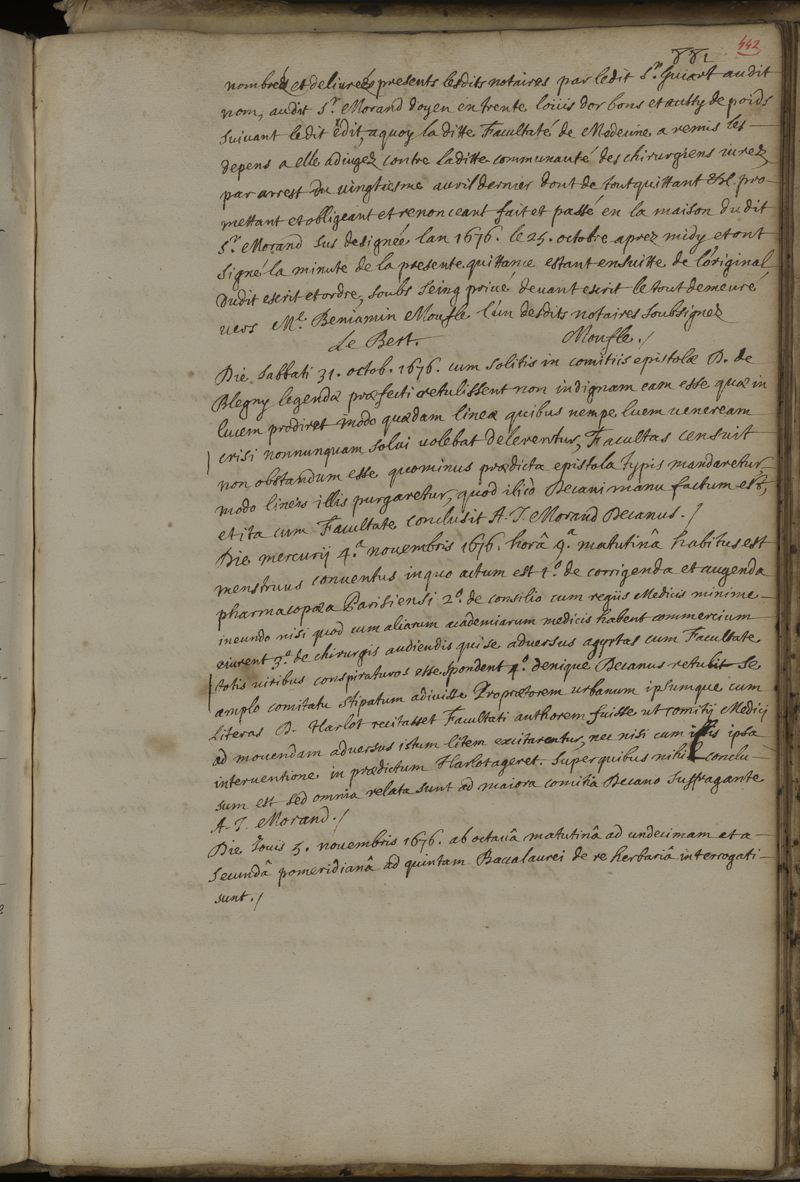 442
881
nombréz et deliurez presents lesdits notaires par ledit Sr. Guiart audit
nom, audit Sr. Morand doyen en trente louis dor bons et aussy de poids
suivant ledit édit, a quoy la ditte Facultaté de Medecine a remis les
depens a elle adiugez contre laditte communauté des chirurgiens iurez
par arrest du vingtiesme auril dernier dont de tout quittant &c. pro-
mettant et obligeant et renonceant fait et passé en la maison dudit
Sr. Morand sus designée, lan 1676. le 25. octobre aprez midy et ont
signé la minute de la presente quittance estant ensuitte de l'original
dudit escrit et ordre, soubs seing privé deuant escrit le tout demeuré
uers Me. Beniamin Moufle l'un desdits notaires soubsignez
Le Bert. Moufle ./
Die Sabbati 31. octob. 1676. cum solitis in comitiis epistolæ D. de
Blegny legendæ præfecti retulissent non indignam eam esse quæ in
lucem prodiret modo quædam lineæ quibus nempe luem ueneream
crisi nonnunquam solui uolebat delerentur, Facultas censuit
non obstandum esse quominus prædicta epistola typis mandaretur
modo lineis illis purgaretur, quod ilicò Decani manu factum est,
et ita cum Facultate conclusit A. J. Morand Decanus ./
Die mercurij 4.a novembris 1676. horâ 9.a matutinâ habitus est
menstruus conuentus in quo actum est 1.o de corrigenda et augenda
pharmacopæa Parisiensi 2.o de consilio cum regiis Medicis minime
ineundo nisi quod cum aliarum academiarum medicis habent commercium
eiurent 3.o de chirurgis audiendis qui se aduersus agyrtas cum Facultate
totis uiribus conspiraturos esse spondent 4.o denique Decanus retulit se
amplo comitatu stipatum adiuisse Proprætorem urbanum ipsumque cum
literas D. Harlot recitasset Facultati authorem fuisse ut comitij Medicj
ad mouendam aduersus istum litem excitarentur, nec nisi cum illis ipsa
interuentione in prædictum Harlot ageret. Super quibus nihil conclu-
sum est sed omnia relata sunt ad maiora comitia Decano suffragante
A. J. Morand ./
Die Iouis 5. novembris 1676. ab octauâ matutinâ ad undecimam et a
secundâ pomeridianâ ad quintam Baccalaurei de re herbariâ interrogati
sunt ./